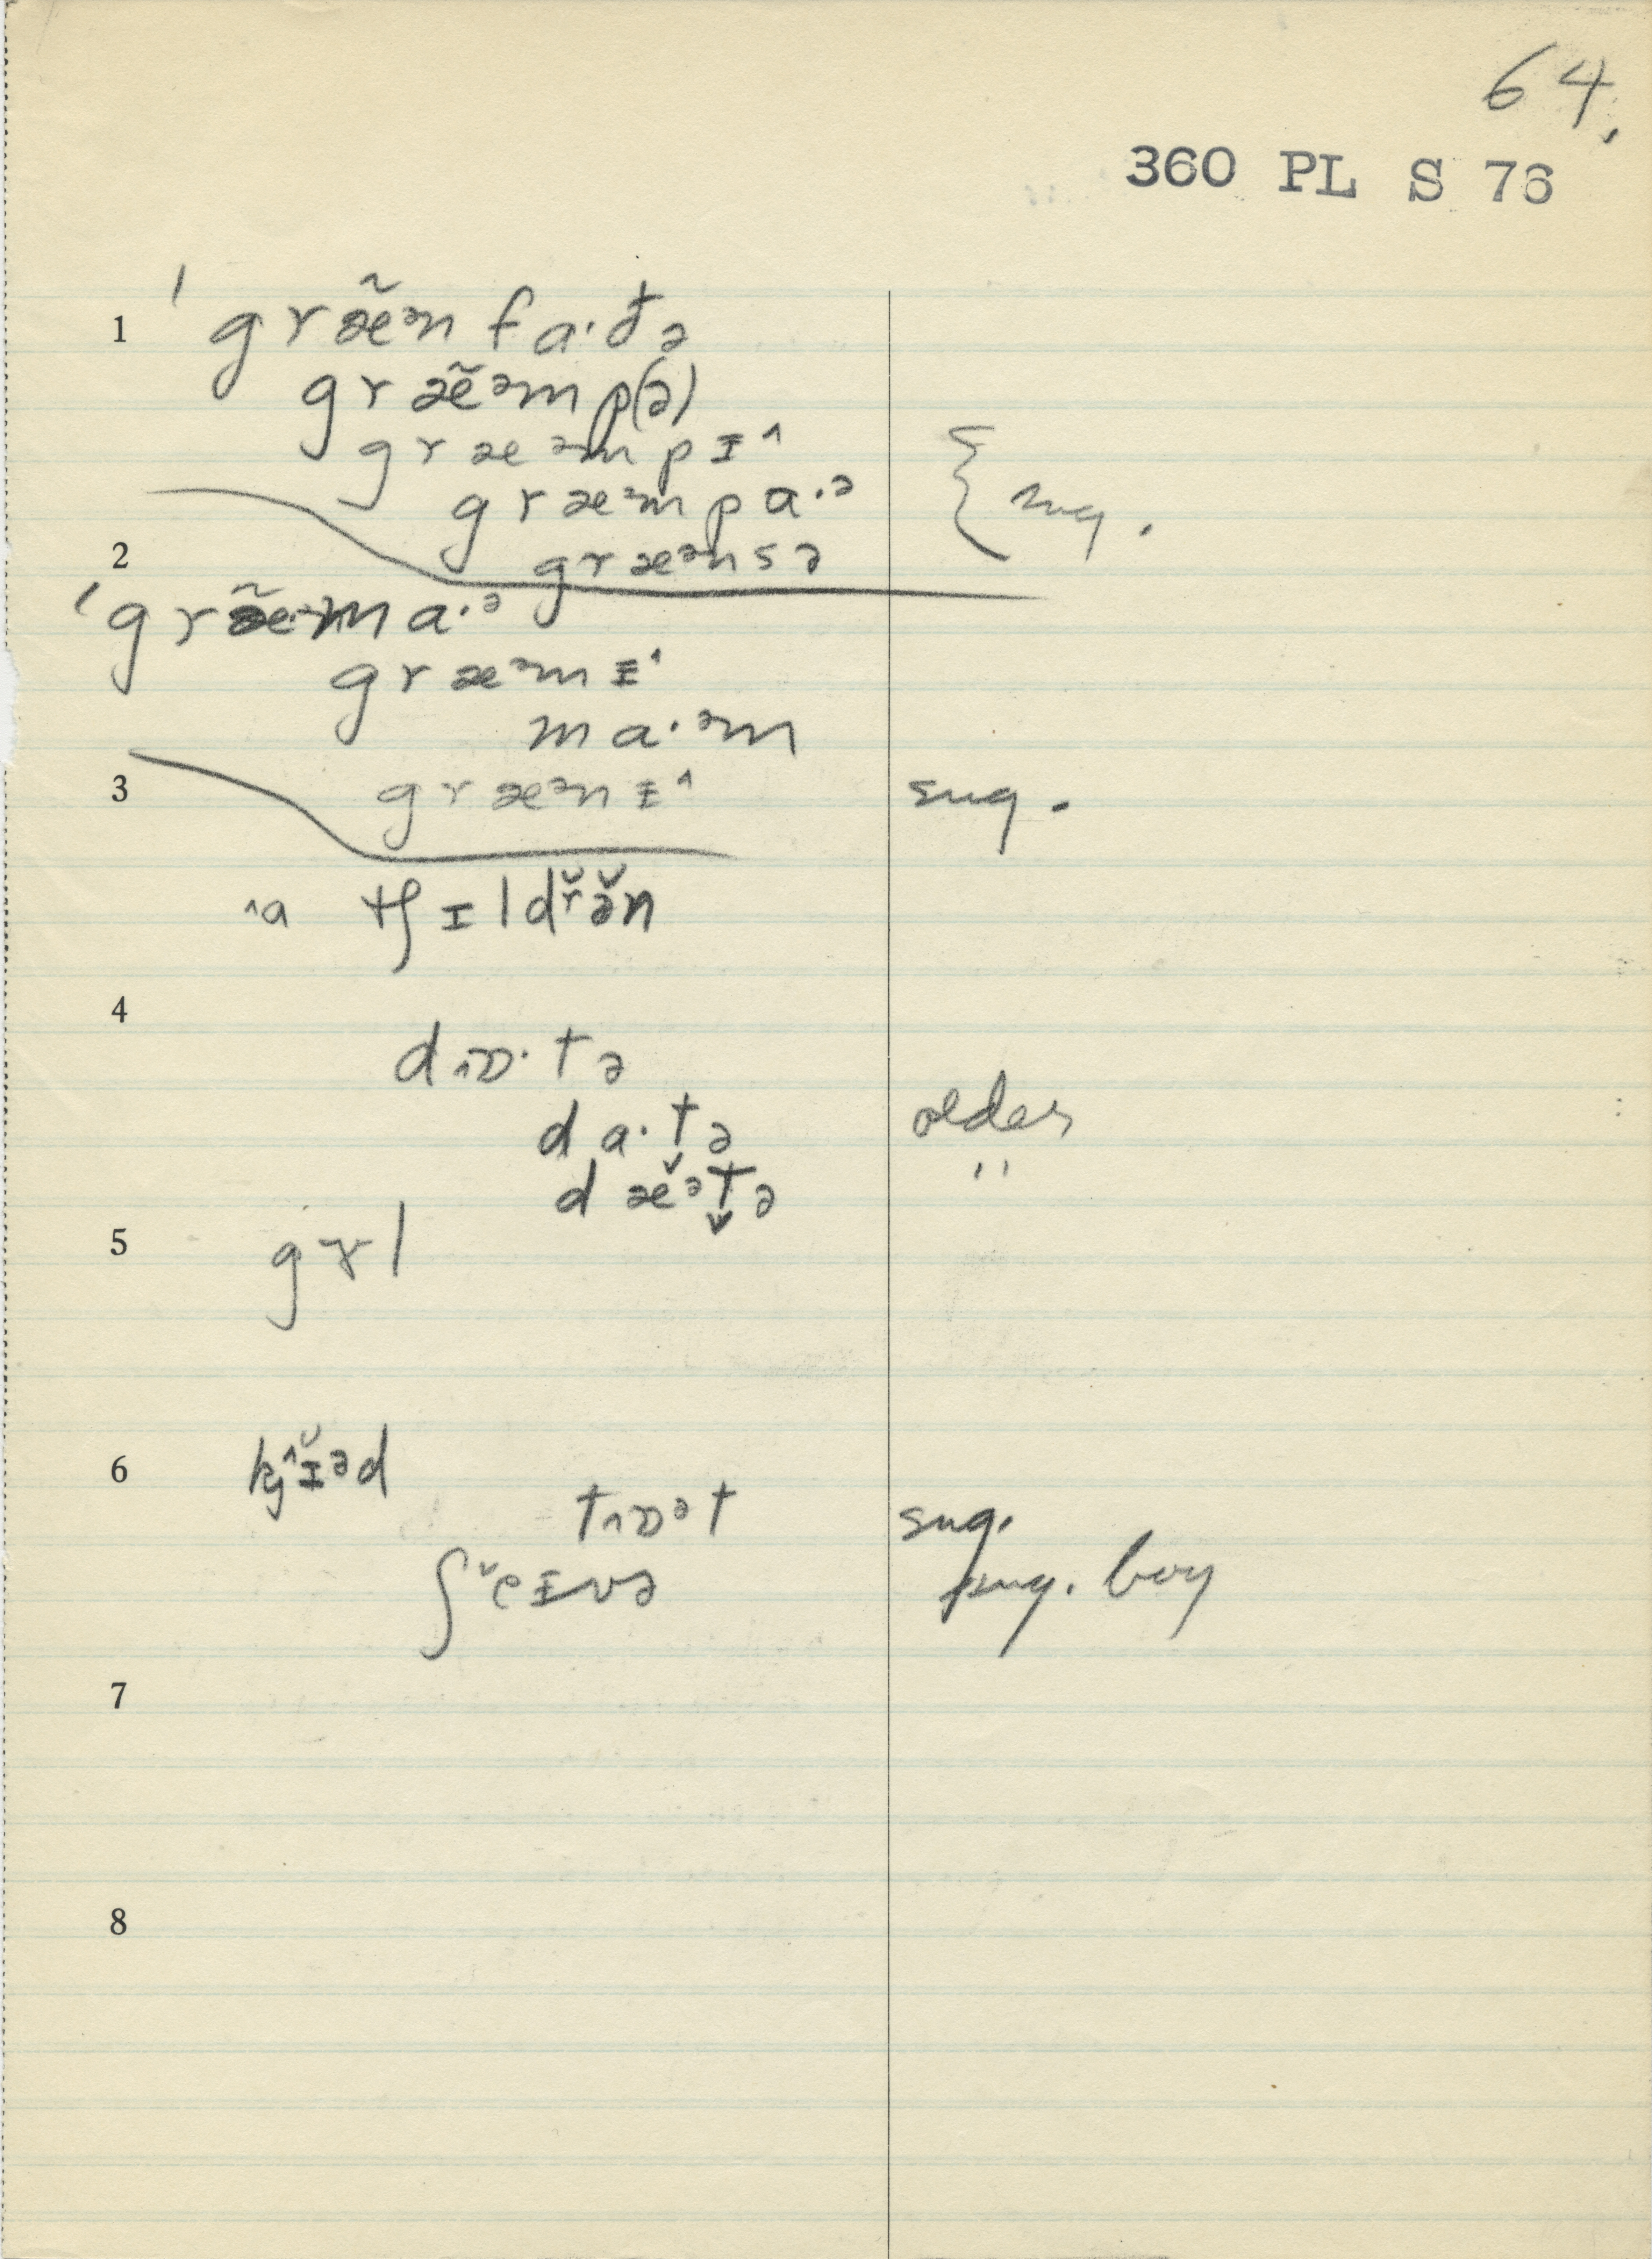 64.
360 PL S 76
1 ˈgræ̃ᵊnfa·ðə
græ̃ᵊmp(ə)
græᵊmpɪ^
græᵊmpa·ᵊ { sug.
2 græᵊnsə
ˈgræ̃ᵊma·ᵊ
græᵊmɪ^
ma·ᵊm
3 græᵊnɪ^ sug.
^a tʃɪldř ə̌n
4
d^ɒ·tə
da·t̬ə older
dæ̌ᵊt̬ə "
5 gɤl
6 kj^ɪ̌ᵊd
t^ɒᵊt sug.
ʃˇeɪvə sug. boy
7
8